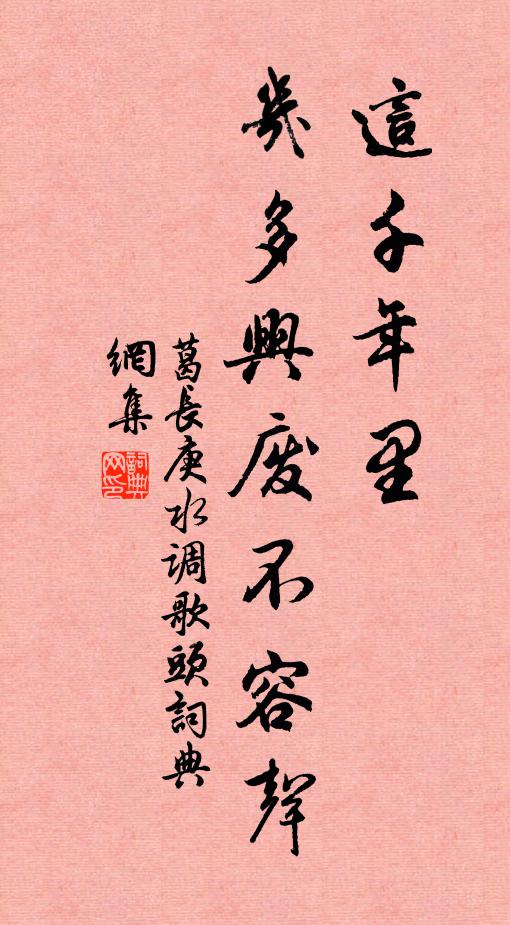 這千年里
幾多興废不容聲
葛長庚水调歌頭詞典
網集
詞典
网印